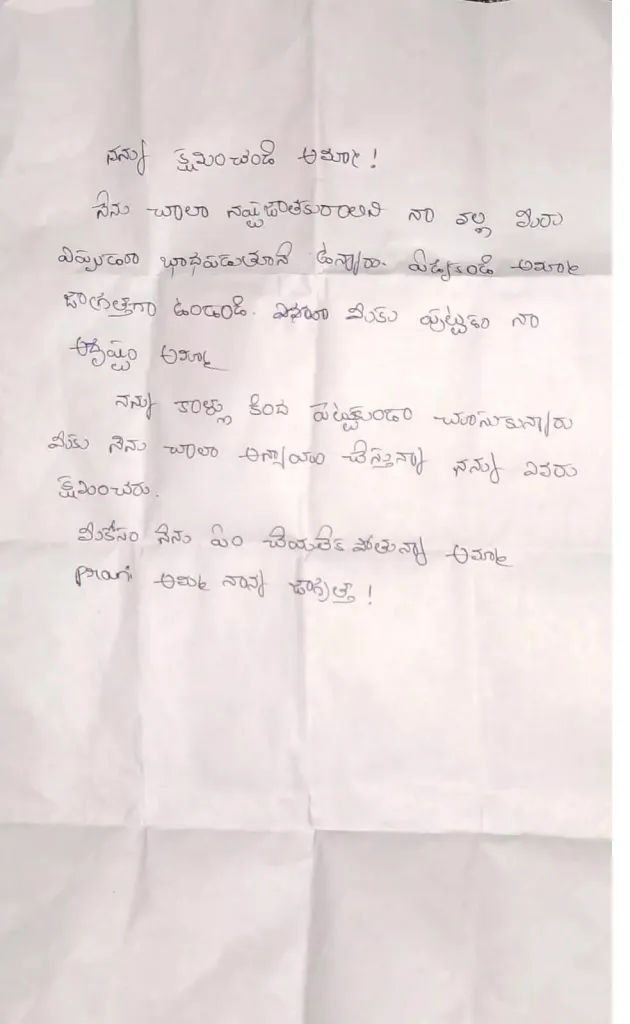 నన్ను క్షమించండి అమ్మా!
నేను చాలా నష్టజాతకురాలిని నా వల్ల మీరు
ఎప్పుడూ భాధపడుతూనే ఉన్నారు. ఏడ్వకండి అమ్మా
జాగ్రత్తగా ఉండండి. మీకు పుట్టడం నా
అదృష్టం అమ్మా
నన్ను కాళ్ళు కింద పెట్టకుండా చూసుకున్నారు
మీకు నేను చాలా అన్యాయం చేస్తున్నా నన్ను ఎవరు
క్షమించరు.
మీకోసం నేను ఏం చేయలేక పోతున్నా అమ్మా
prani అమ్మ నాన్న జాగ్రత్త!